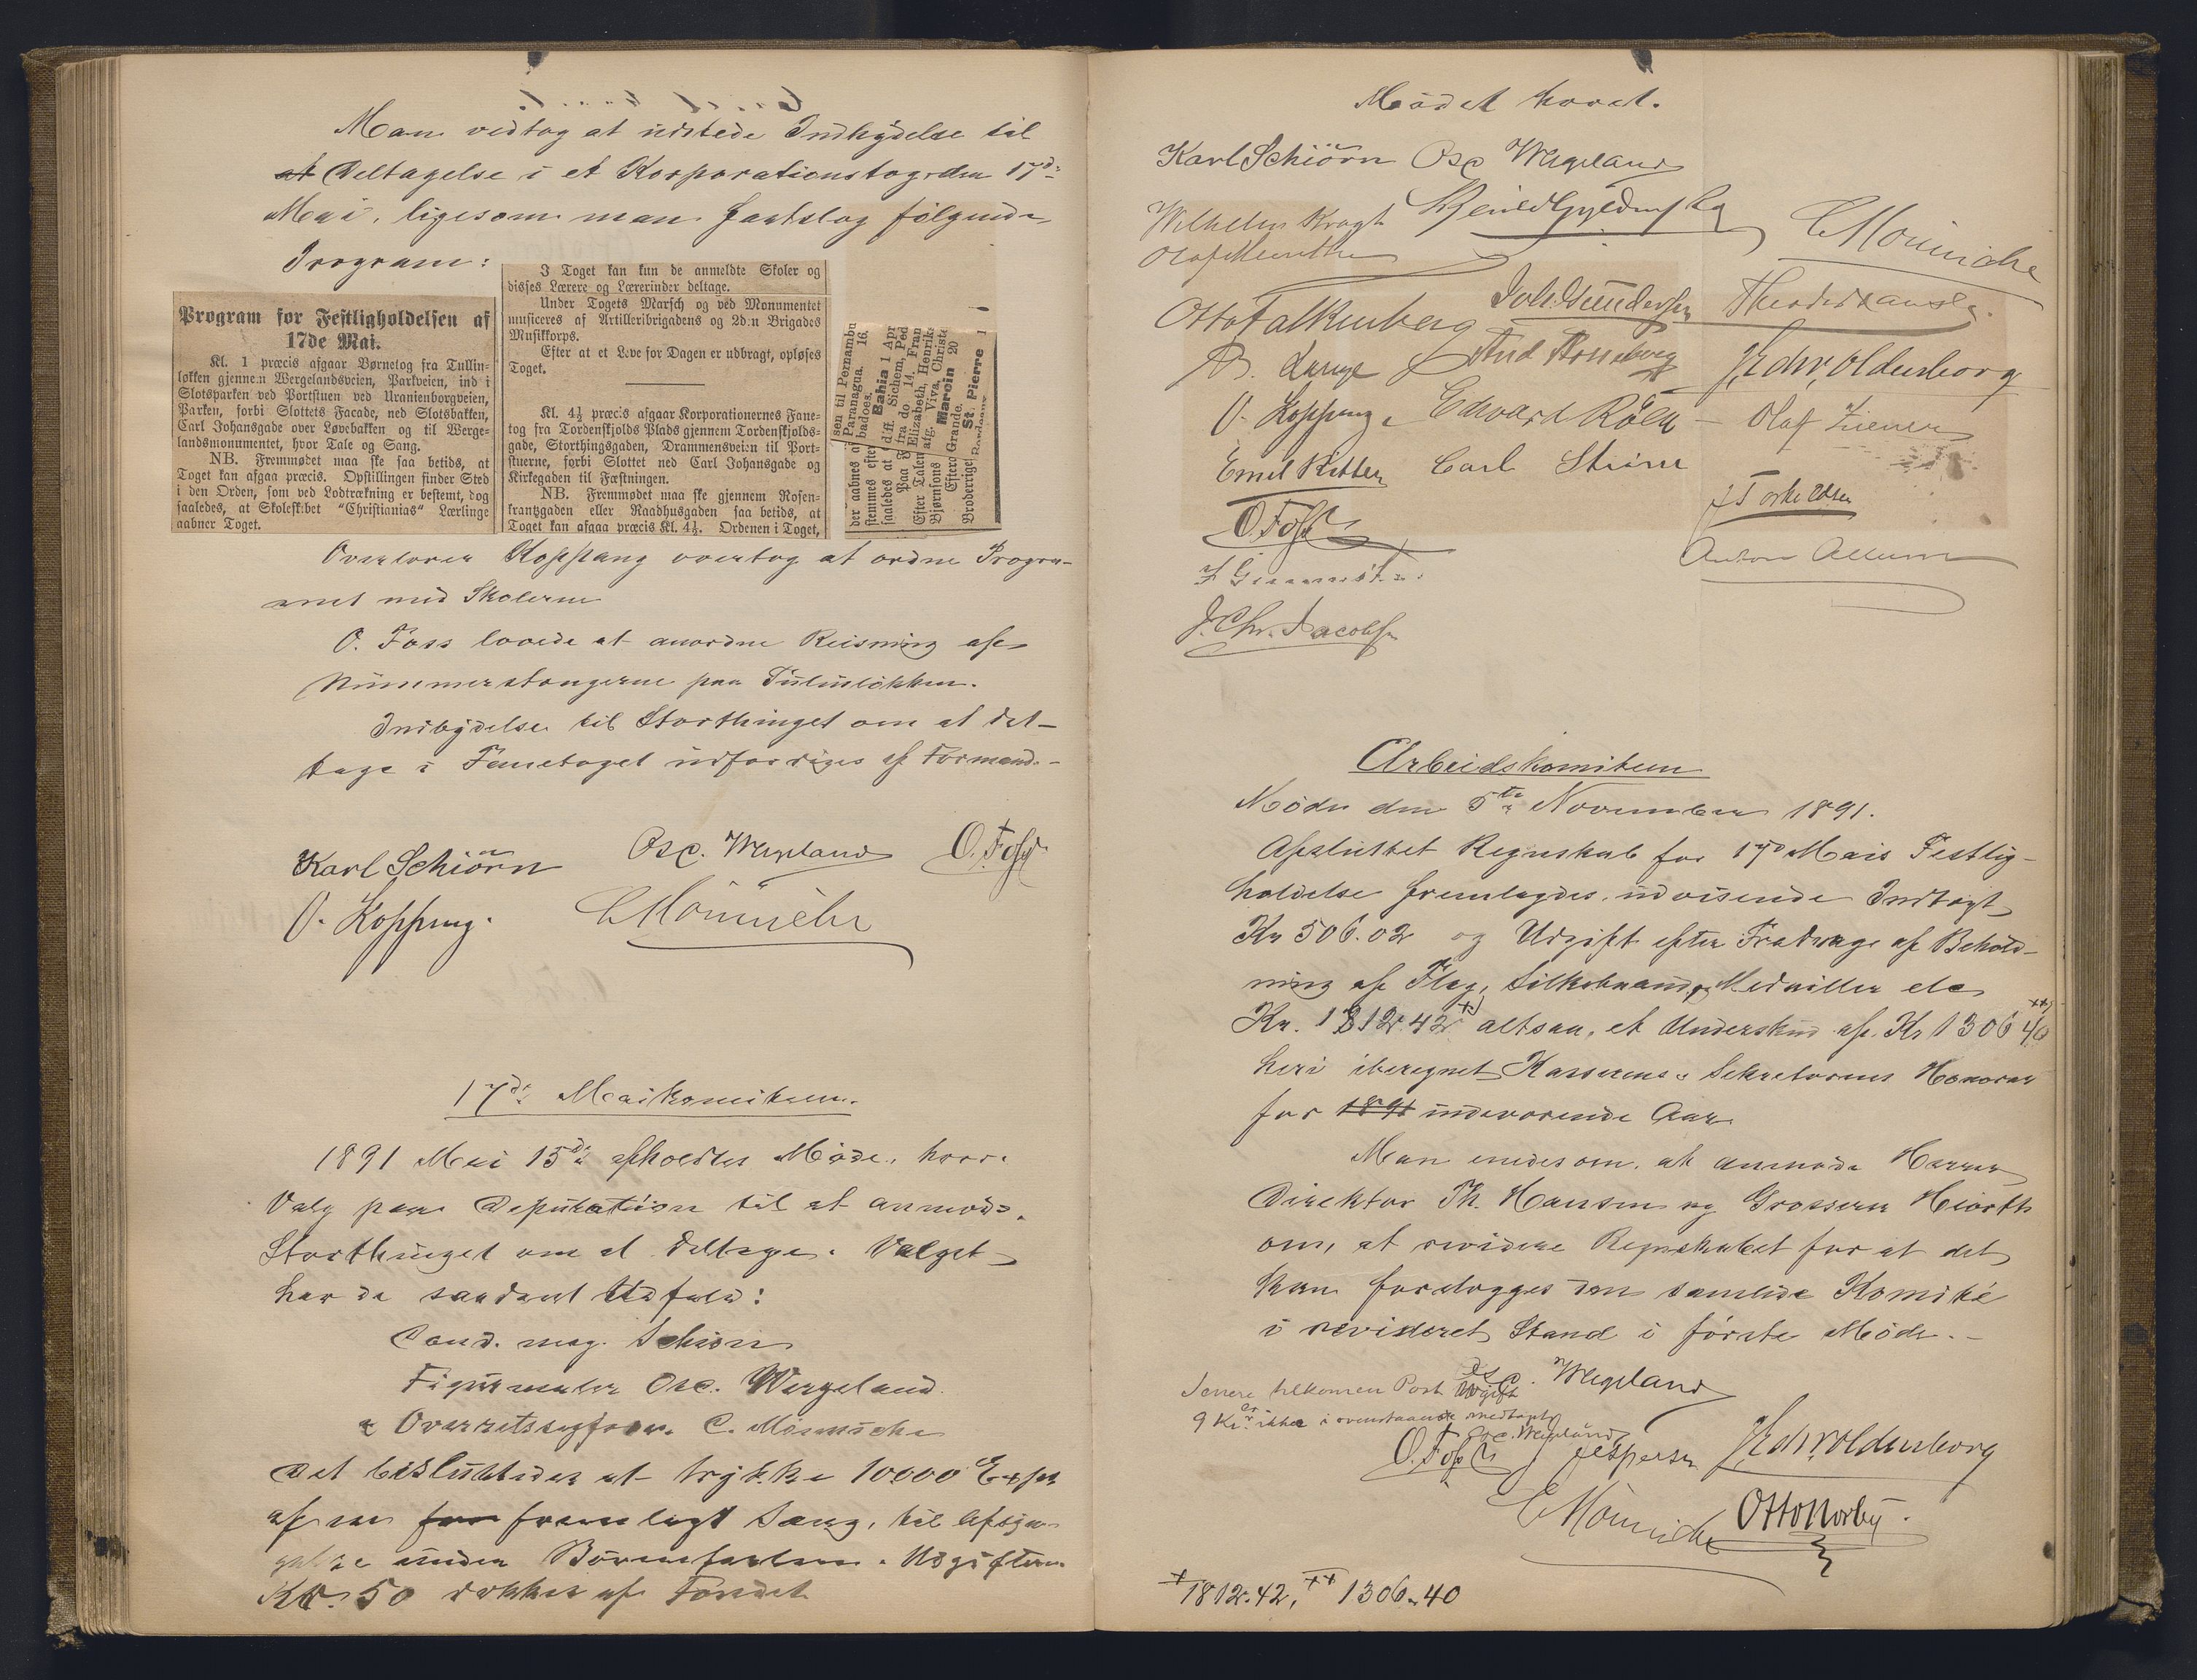 Man vedtog at udstede Indbydelse til
at Deltagelse i et Korporationstog den 17de
Mai, ligesom man fastslog følgende
Program:
Program for Festligholdelsen af
17de Mai.
Kl. 1 præcis afgaar Børnetog fra Tullin-
løkken gjennem Wergelandsveien, Parkveien, ind i
Slotsparken ved Portstuen ved Uranienborgveien,
Parken, forbi Slottets Facade, ned Slotsbakken,
Carl Johansgade over Løvebakken og til Werge-
landsmonumentet, hvor Tale og Sang.
NB. Fremmødet maa ske saa betids, at
Toget kan afgaa præcis. Opstillingen finder Sted
i den Orden, som ved Lodtrækning er bestemt, dog
saaledes, at Skoleskibet "Christianias" Lærlinge
aabner Toget.
I Toget kan kun de anmeldte Skoler og
disses Lærere og Lærerinder deltage.
Under Togets Marsch og ved Monumentet
musiceres af Artilleribrigadens og 2den Brigades
Musikkorps.
Efter at et Leve for Dagen er udbragt, opløses
Toget.
Kl. 4½ præcis afgaar Korporationernes Fane-
tog fra Tordenskjolds Plads gjennem Tordenskjolds-
gade, Storthingsgaden, Drammensveien til Port-
stuerne, forbi Slottet ned Carl Johansgade og
Kirkegaden til Fæstningen.
NB. Fremmødet maa ske gjennem Rosen-
krantzgaden eller Raadhusgaden saa betids, at
Toget kan afgaa præcis Kl. 4½. Ordenen i Toget,
der aabnes a
stemmes efter
saaledes at d
Paa
Efter Talen
Bjørnsons
Eftera
Broderrige
sen til Pernambu
Paranagua. 16.
badoes.
Bahia 1 Apr
dift. Sichem, Ped
fra do. 14. Fran
Elizabeth, Henrik
afg. Viva, Christe
Marcin 20
Grande.
St. Pierre 1
Overlærer Koppang overtog at ordne Progra-
met med Skolerne
O. Foss lovede at anordne Reisning af
Nummerstangerne paa Tulinløkken.
Indbydelse til Storthinget om at del-
tage i Fanetoget udfærdiges af Formand.-
Karl Schiørn Osc. Wergeland O. Foss
O. Koppang. C Mönniche
17de Maikomiteen.
1891 Mai 15de afholdtes Møde, hvor
Valg paa Deputation til at anmode
Storthinget om at deltage. Valget
havde saadant Udfald:
Cand. mag. Schiørn
Figurmaler Osc. Wergeland
& Overretssagfører C. Mönniche
Det besluttedes at trykke 10000 Expl
af en for fremlagt Sang, til Afsyn-
gelse under Børnefesten. Udgiften
Kr. 50 dækkes af Fondet
Mødet hævet.
Karl Schiørn Osc Wergeland
Wilhelm Kragh
C Mönniche
Otto Falkenberg Joh. Gundersen Theodor Hansen
B. Lange And Rosenborg J. Edw. Oldenborg
O. Koppang. Edvard Röed Olaf Ziener
Emil Kittler Carl Strøm
J Torkildsen
O. Foss
Anton Allum
J. Chr. Jacobsen
Arbeidskomiteen
Møde den 5te November 1891.
Afsluttet Regnskab for 17de Mais Festlig-
holdelse fremlagdes, udvisende Indtægt
Kr 506.02 og Udgift efter Fradrag af Behold-
ning af Flag, Silkebaand, Medailler etc
Kr. 1812.42 x) altsaa et Underskud af Kr 1306 40 xx)
heri iberegnet Kasserens & Sekretærens Honorar
for 1891 indeværende Aar
Man enedes om at anmode Herrer
Direktør Th. Hansen og Grosserer Hiorth
om, at revidere Regnskabet for at det
kan forelægges den samlede Komité
i revideret Stand i første Møde. -
Osc. Wergeland
Senere tilkommen Post Udgift
9 Kr. er ikke i ovenstaaende medtagt
Osc. Wergeland
O. Foss J Jespersen J. Edw. Oldenborg
C Mönniche Otto Norby.
x 1812.42, xx 1306.40